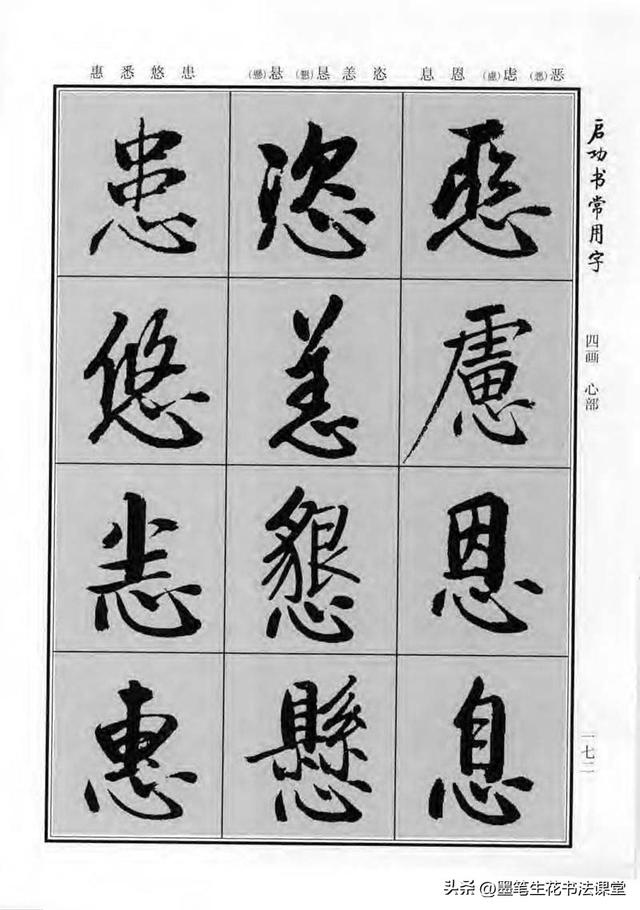 恶(惡)虑(慮)恩息
恣恙恳(懇)悬(懸)
患悠悉惠
启功书常用字
四画 心部
一七二
惡慮恩息
恣恙懇懸
患悠悉惠
头条 @墨笔生花书法课堂